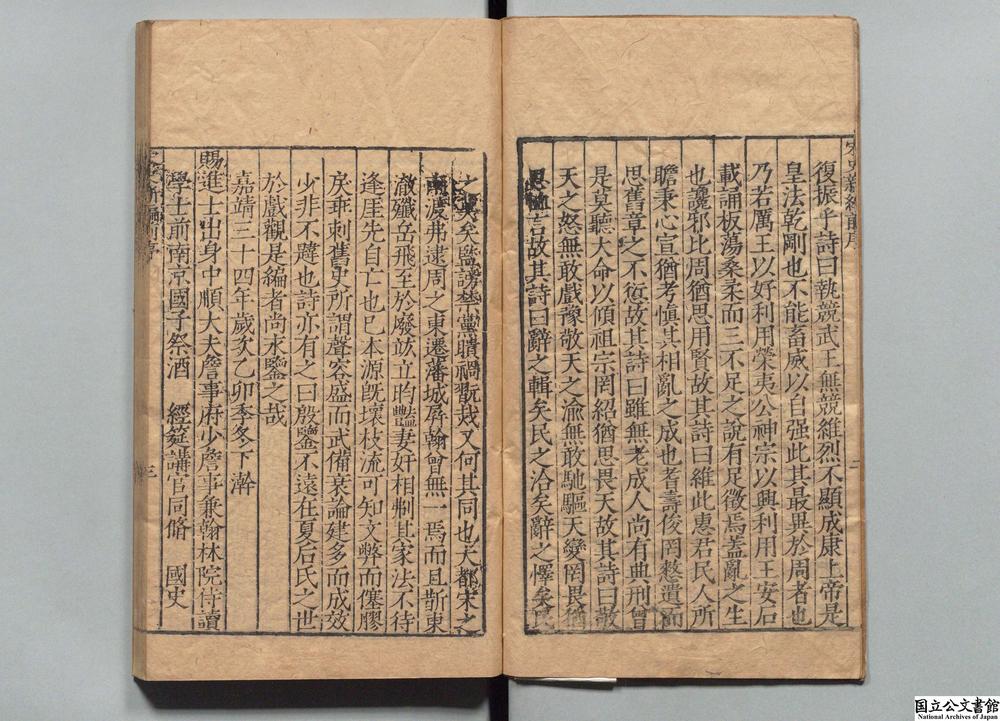 復振乎詩曰執競武王無競維烈不顯成康上帝是
皇法乾剛也不能畜威以自强此其最異於周者也
乃若厲王以好利用榮夷公神宗以興利用王安石
載誦板蕩桑柔而三不足之說有足徵焉蓋亂之生
也讒邪比周猶思用賢故其詩曰維此惠君民人所
瞻秉心宣猶考愼其相亂之成也耆壽俊罔憗遺而
思舊章之不愆故其詩曰雖無老成人尚有典刑曾
是莫聽大命以傾祖宗罔紹猶思畏天故其詩曰敬
天之怒無敢戲豫敬天之渝無敢馳驅天變罔畏猶
言故其詩曰辭之輯矣民之洽矣辭之懌矣民
之莫矣監謗禁黨瞶禍戬烖又何其同也大都宋之
南渡弗逮周之東遷藩城屏翰曾無一焉而且斲東
瀲殲岳飛至於廢竑立昀豔妻奸相制其家法不待
逢厓先自亡也已本源旣壞枝流可知文弊而僿膠
戾乖刺舊史所謂聲容盛而武備衰論建多而成效
少非不韙也詩亦有之曰殷鑒不遠在夏后氏之世
於戲觀是編者尚永鑒之哉
嘉靖三十四年歲次乙卯季冬下澣
賜進士出身中順大夫詹事府少詹事兼翰林院侍讀
學士前南京國子祭酒 經筵講官同脩 國史
三
国立公文書館
National Archives of Japan